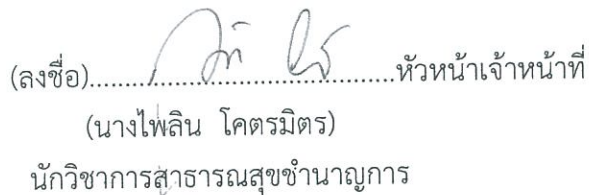 (ลงชื่อ)..........................................หัวหน้าเจ้าหน้าที่
(นางไพลิน โคตรมิตร)
นักวิชาการสาธารณสุขชำนาญการ